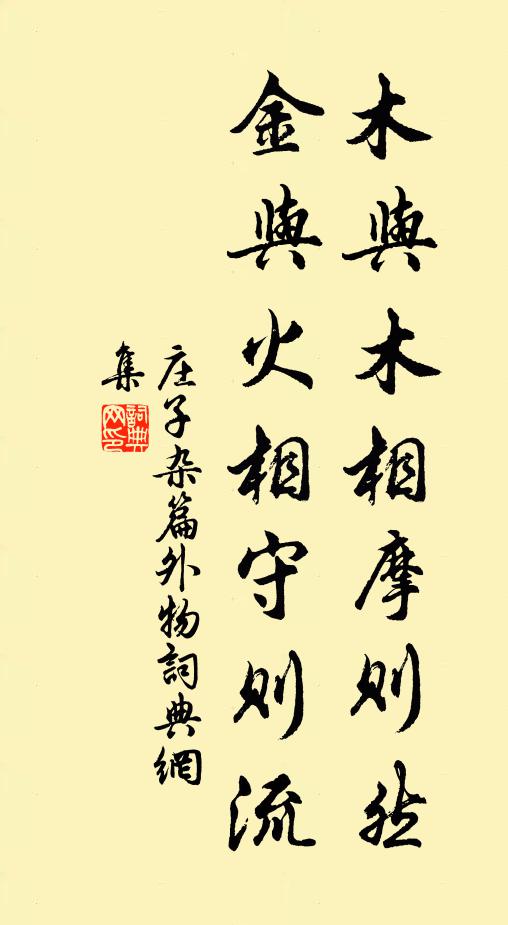 木與木相摩則然
金與火相守則流
庄子杂篇外物詞典網
集
詞典
网印